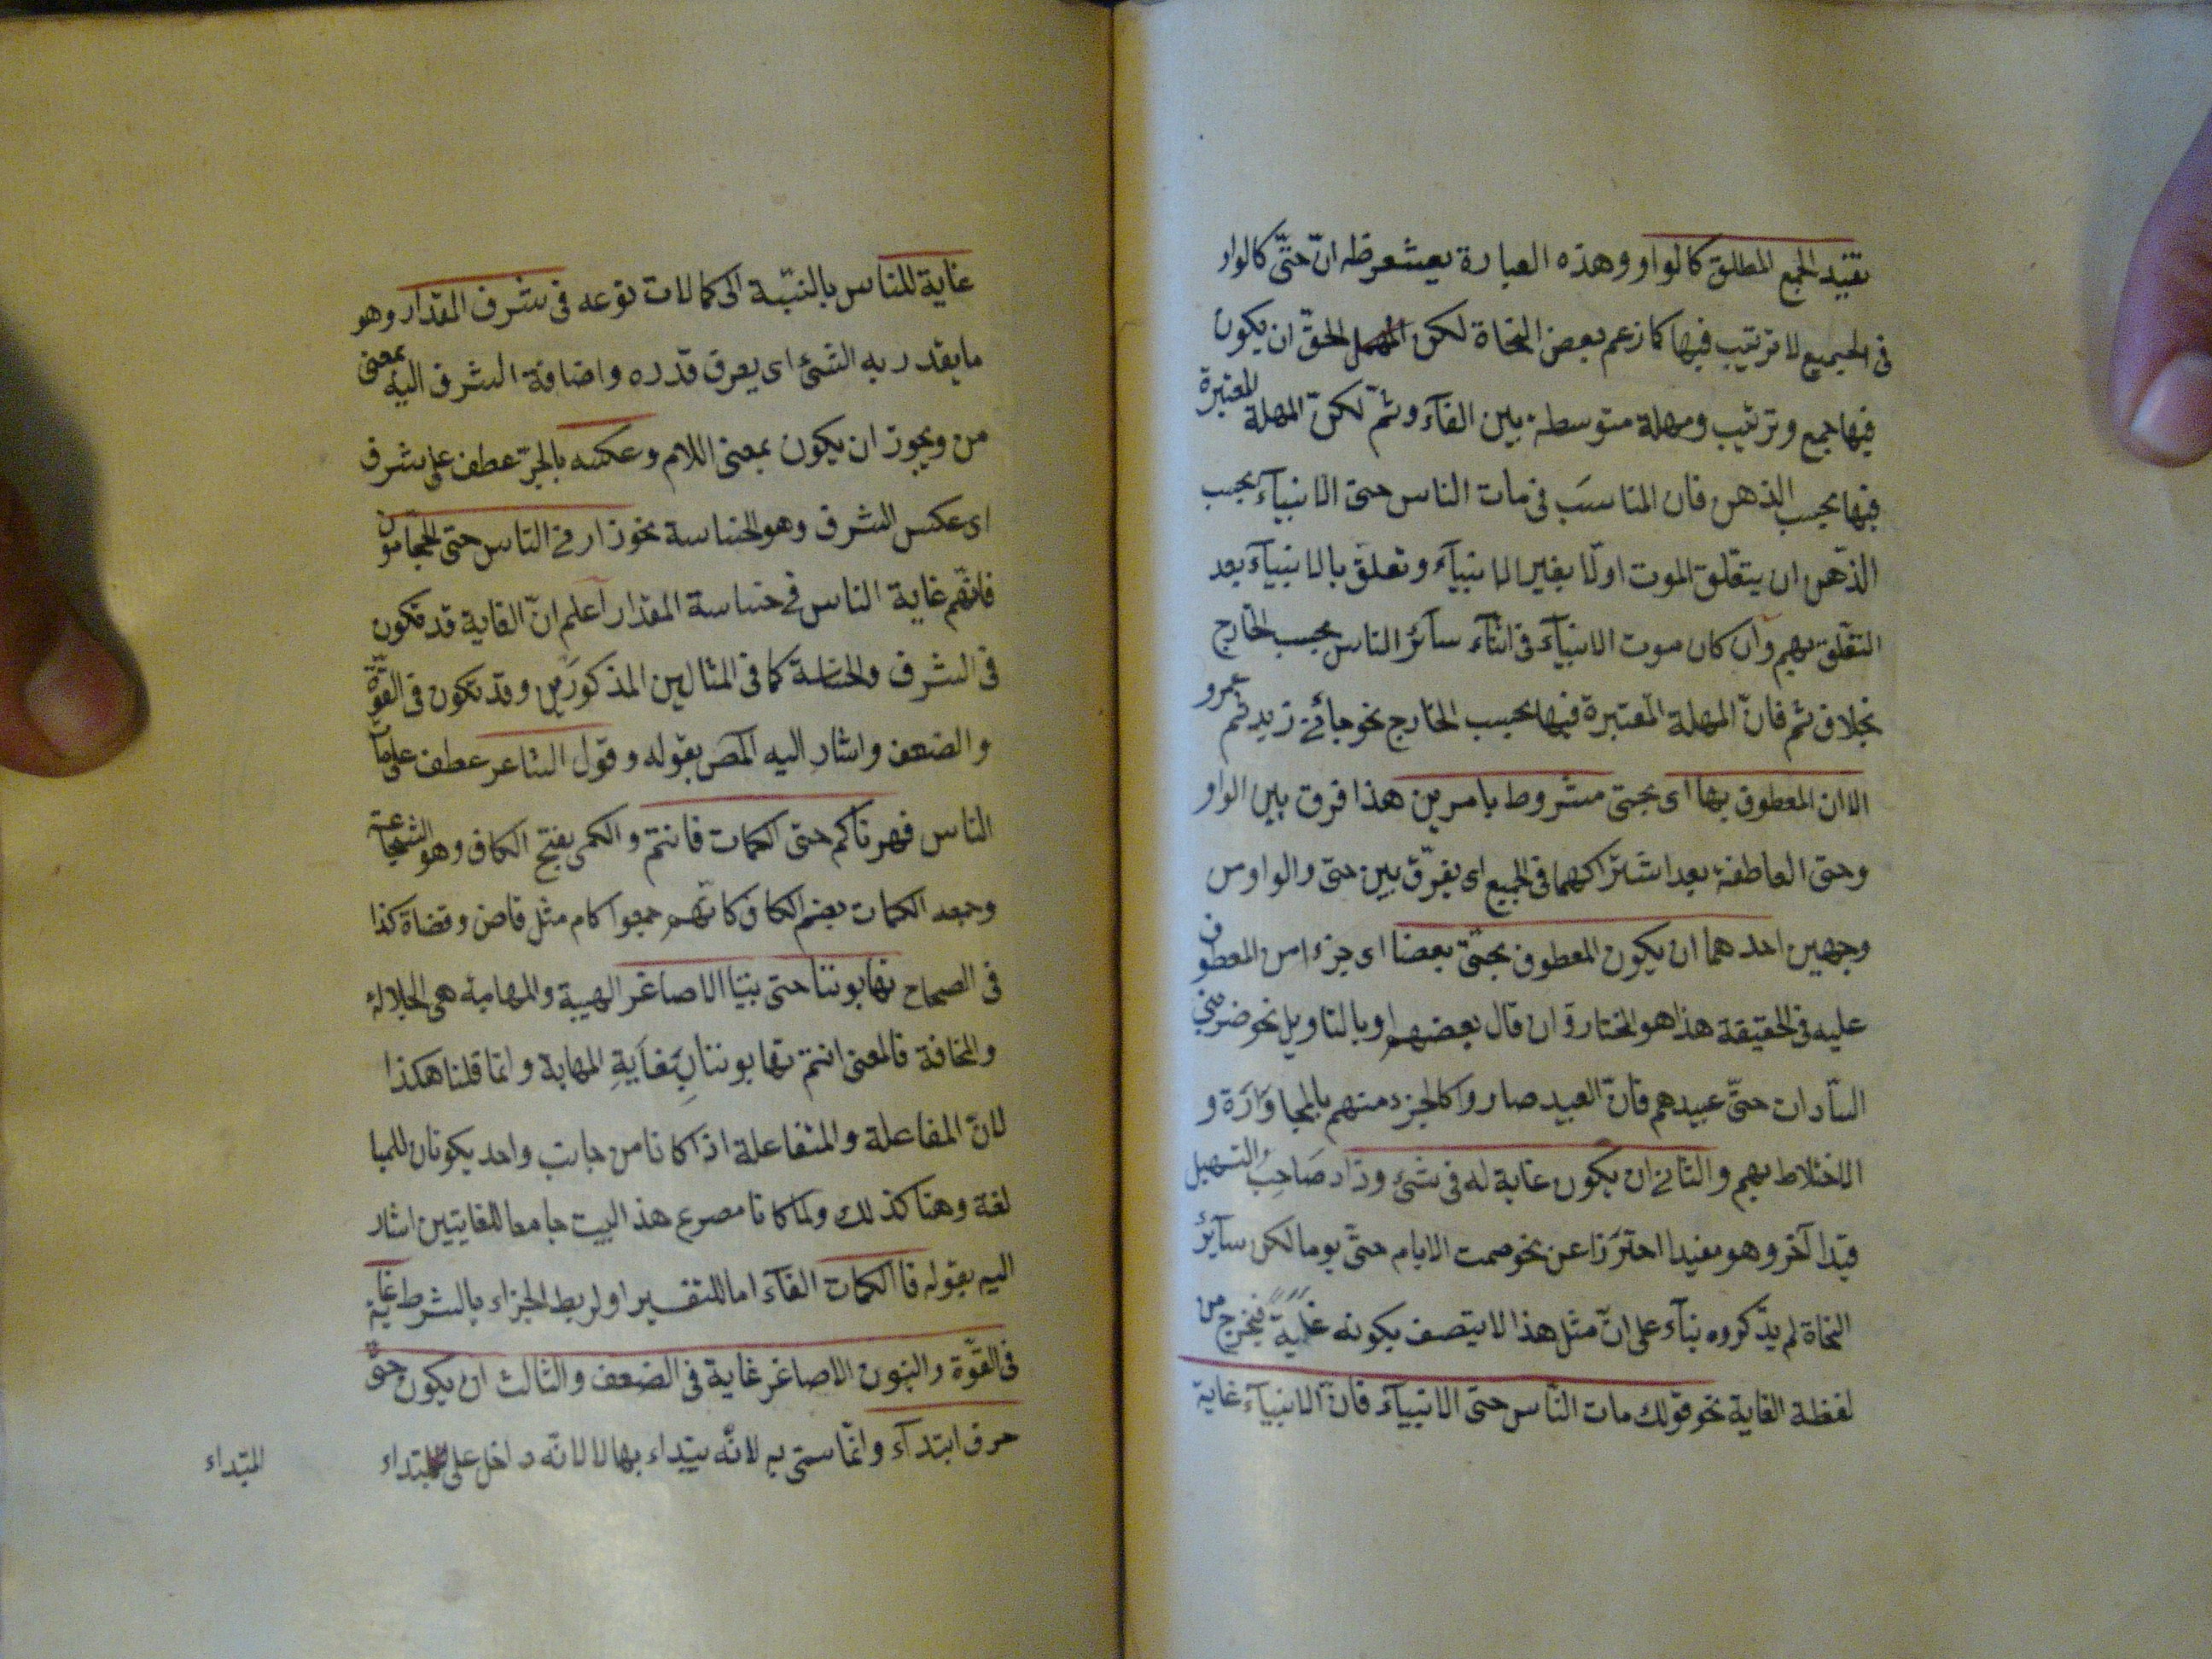 تفيد الجمع المطلق كالواو وهذه العبارة يشعر ظه انّ حتّى كالواو
فى الجميع لا ترتيب فيها كما زعم بعض النحاة لكن الحقّ ان يكون
فيها جمع وترتيب ومهلة متوسطة بين الفآء وثمّ لكنّ المهلة المعتبرة
فيها بحسب الذهن فان المناسَب فى مات الناس حتى الانبيآء بحسب
الذّهن ان يتعلّق الموت اولّا بغير الانبيآء وتعلق بالانبيآء بعد
التعلّق بهم وان كان موت الانبيآء فى اثنآء سآئر الناس بحسب الخارج
بخلاف ثم فانّ المهلة المعتبرة فيها بحسب الخارج نحو جائنى زيد ثم عمرو
الا ان المعطوف بها اى بحتى مشروط بامرين هذا فرق بين الواو
وحتى العاطفة بعد اشتراكهما فى الجمع اى يفرّق بين حتى والواو من
وجهين احدهما ان يكون المعطوف بحتّى بعضا اى جزءا من المعطوف
عليه فى الحقيقة هذا هو المختار وان قال بعضهم او بالتاويل نحو ضربنى
السّادات حتّى عبيدهم فانّ العبيد صاروا كالجزء منهم بالمجاوَارَة و
الاختلاط بهم والثانى ان يكون غاية له فى شئ وزاد صَاحِبُ التسهيل
قيدا آخر وهو مفيدا احترَزا عن نحو صمت الايام حتّى يوما لكن سآئر
النحاة لم يذكروه بنآء على انّ مثل هذا لا يتصف بكونه غاية فيخرج من
لفظة الغاية نحو قولك مات النّاس حتى الانبيآء فانّ الانبيآء غاية
غاية للناس بالنسبة الى كمالات نوعه فى شرف المقدار وهو
ما يقدر به الشئ اى يعرف قدره واضافة الشرف اليه بمعنى
من ويجوز ان يكون بمعنى اللام وعكسه بالجرّ عطف على شرف
اى عكس الشرف وهو الخساسة نحو زارنى النّاس حتى الحجّامون
فانّهم غاية الناس فى خساسة المقدار اعلم انّ الغاية قد تكون
فى الشرف والخساسة كما فى المثالين المذكورَين وقد تكون فى القوّة
والضعف واشار اليه المص بقوله وقول الشاعر عطف على مات
الناس قهرناكم حتى الكمات فانتم والكمى بفتح الكاف وهو الشجاعة
وجمعه الكمات بضم الكاف كانّهم جمعوا كام مثل قاض وقضاة كذا
فى الصحاح تهابوننا حتى بنينا الاصاغر الهيبة والمهابة هى الجلالة
والمخافة فالمعنى انتم تهابوننا بِغَايَةِ المهابة وانما قلنا هكذا
لانّ المفاعلة والمتفاعلة اذا كانا من جانب واحد يكونان للمبا
لغة وهنا كذلك ولما كانا مصرع هذا البيت جامعا للغايتين اشار
اليه بقوله فا الكمات الفآء اما للتفسير او لربط الجزاء بالشرط غاية
فى القوّة والبنون الاصاغر غاية فى الضعف والثالث ان يكون حتى
حرف ابتدآء وانّما سمّى به لانّه يبتداء بها لا لانّه داخل على المبتداء
المبتداء